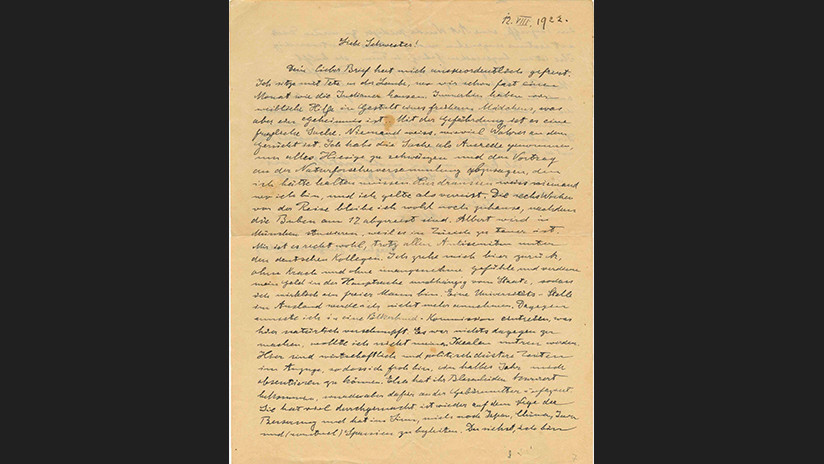 12. VIII. 1922.
Liebe Schwester!
Dein lieber Brief hat mich ausserordentlich gefreut.
Ich sitze mit Tete in der Laube, wo wir schon fast einen
Monat wie die Indianer hausen. Immerhin haben wir
weibliche Hilfe in Gestalt eines früheren Mädchens, was
aber ein Geheimnis ist. Mit der Gefährdung ist es eine
fragliche Sache. Niemand weiss, wieviel Wahres an dem
Gerücht ist. Ich habe die Sache als Ausrede genommen,
um alles Hiesige zu schwänzen und den Vortrag
an der Naturforscherversammlung abzusagen, den
ich hätte halten müssen. Hier draussen weiss niemand
wo ich bin, und ich gelte als verreist. Die sechs Wochen
vor der Reise bleibe ich wohl noch zuhause, nachdem
die Buben am 17 abgereist sind. Albert wird in
München studieren, weil es in Zürich zu teuer ist.
Mir ist es recht wohl, trotz allen Antisemiten unter
den deutschen Kollegen. Ich ziehe mich hier zurück,
ohne Krach und ohne unangenehme Gefühle und verdiene
mein Geld in der Hauptsache unabhängig vom Staate, sodass
ich wirklich ein freier Mann bin. Eine Universitäts-Stelle
im Ausland werde ich nicht mehr annehmen. Dagegen
musste ich in eine Völkerbund-Kommission eintreten, was
hier natürlich verschnupft. Es war nichts dagegen zu
machen, wollte ich nicht meinen Idealen untreu werden.
Hier sind wirtschaftlich und politisch düstere Zeiten
im Anzuge, sodass ich froh bin, ein halbes Jahr mich
absentieren zu können. Elsa hat ihr Blasenleiden
bekommen, ausserdem dafür an der Gebärmutter
Sie hat viel durchgemacht ist wieder auf dem Wege der
Besserung und hat im Sinn, mich nach Japan, China, Java
und (eventuel) Spanien zu begleiten. Du siehst, ich bin